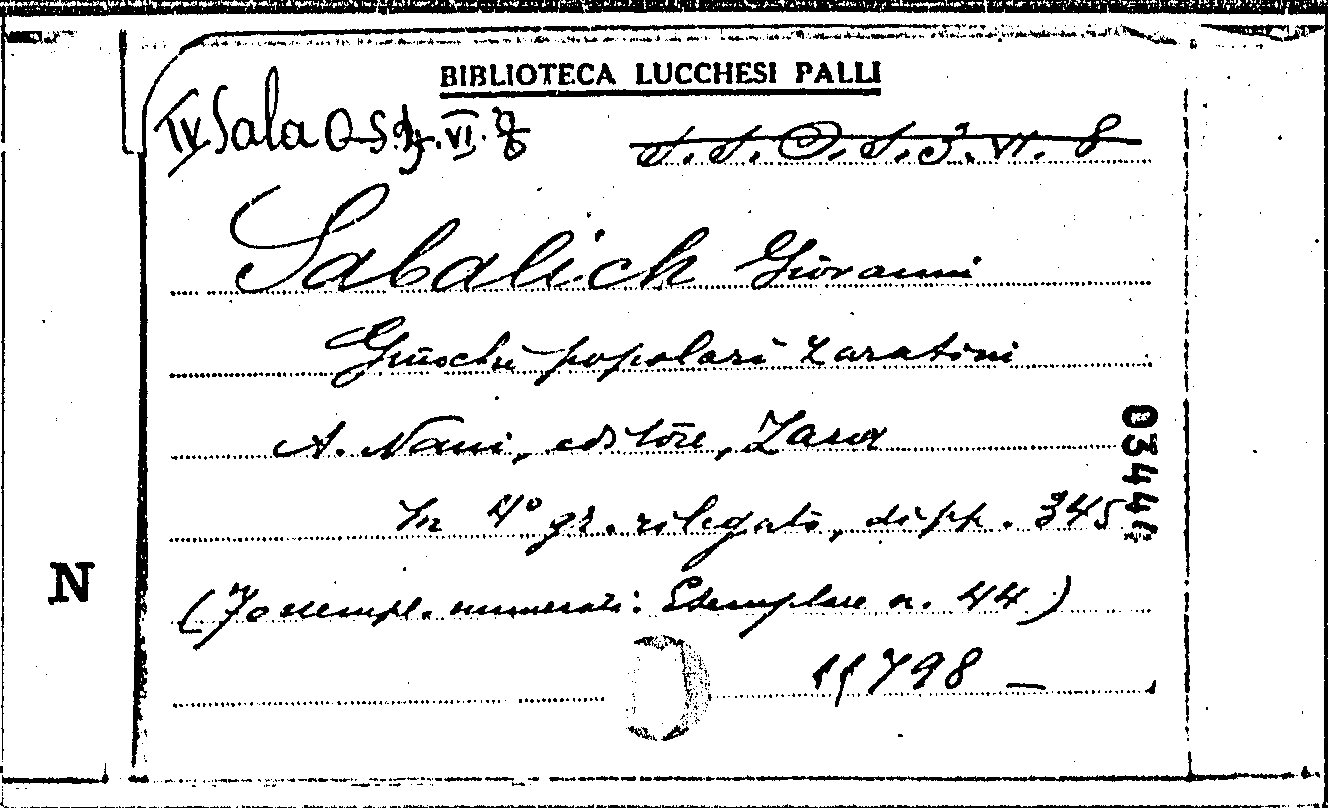 BIBLIOTECA LUCCHESI PALLI
IV Sala O-S VI. 8
S. S. O. S. 3. VI. 8
Sabalich Giovanni
Giuochi popolari Zaratini
A. Nani, editore, Zara
In 4° gr. rilegato, di pp. 345
03444
N
(70 esempl. numerati: Esemplare n. 44)
798 —